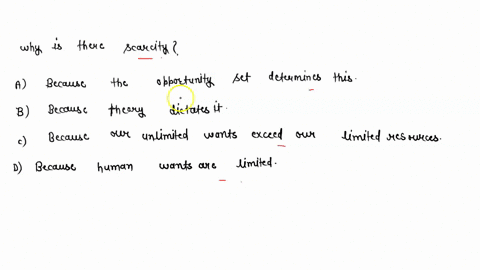 why is there scarcity?
A) Because the opportunity set determines this.
B) Because theory dictates it.
c) Because our unlimited wants exceed our limited resources.
D) Because human wants are limited.